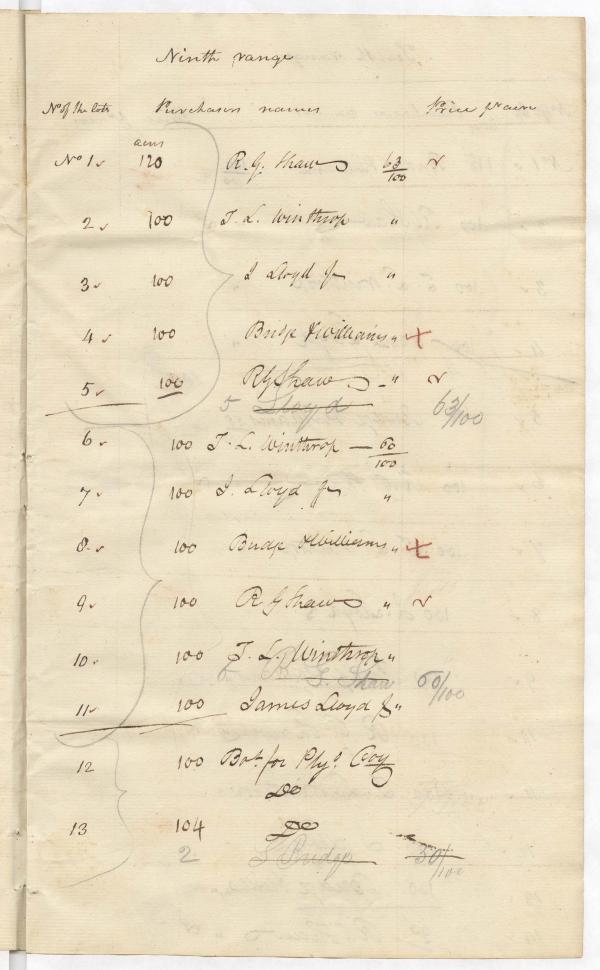 Ninth range
No of the lots Purchasers names Price pr acre
acres
No 1 120 R. G. Shaw 63/100
2 100 T. L. Winthrop "
3 100 J Lloyd Jr "
4 100 Bridge & Williams " X
5 100 R G Shaw - "
5 Lloyd 63/100
6 100 T. L. Winthrop — 60/100
7 100 J. Lloyd Jr "
8 100 Bridge & Williams " X
9 100 R G Shaw "
10 100 T. L. Winthrop "
G. Shaw 60/100
11 100 James Lloyd Jr "
12 100 Bot. for Plyo Coy
Do
13 104 Do
2 S Bridge 50/100